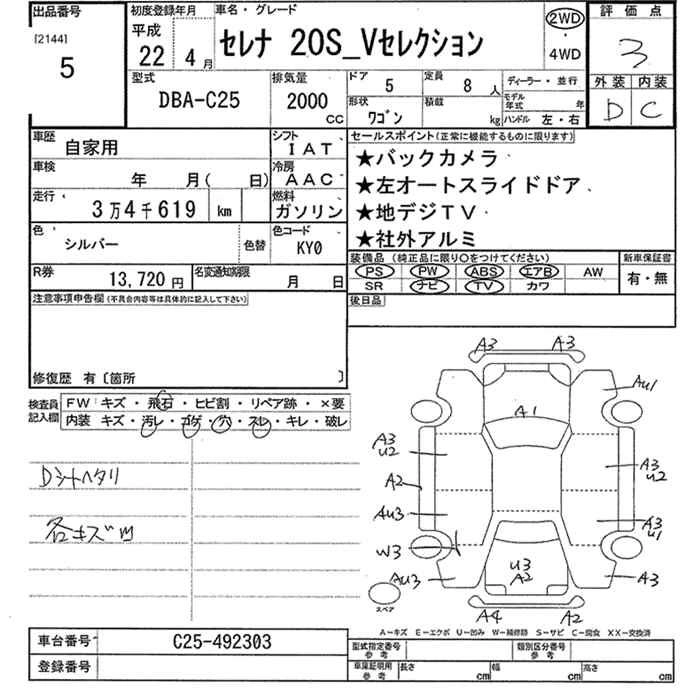 出品番号
[2144]
5
初度登録年月
平成
22年 4月
車名・グレード
セレナ 20S_Vセレクション
2WD
・
4WD
評価点
3
外装 内装
D C
型式
DBA-C25
排気量
2000
CC
ドア 5
定員 8人
ディーラー・並行
形状 ワゴン
積載 kg
モデル年式 年
ハンドル 左・右
車歴 自家用
シフト IAT
車検 年 月( 日)
冷房 AAC
走行 3万4千619 km
燃料 ガソリン
色 シルバー
色替
色コード KY0
R券 13,720円
名変通知期限 月 日
セールスポイント(正常に機能するものに限ります)
★バックカメラ
★左オートスライドドア
★地デジTV
★社外アルミ
装備品(純正品に限り○をつけてください)
新車保証書
PS PW ABS エアB AW
SR ナビ TV カワ
有・無
後日品
注意事項申告欄(不具合内容等は具体的に記入して下さい)
修復歴 有〔箇所 〕
検査員記入欄
FW: キズ・飛石・ヒビ割・リペア跡・×要
内装 キズ・汚レ・コゲ・穴・スレ・キレ・破レ
Dシートヘタリ
各キズ凹
A3 A3
AU1
A1
A3
U2
A3
U2
A2
AU3
A3
U1
W3
U3
A2
AU3
A3
スペア
A4 A2
A−キズ E−エクボ U−凹み W−補修跡 S−サビ C−腐食 XX−交換済
車台番号 C25-492303
登録番号
型式指定番号
参考
類別区分番号
参考
車庫証明用
参考
長さ cm 幅 cm 高さ cm